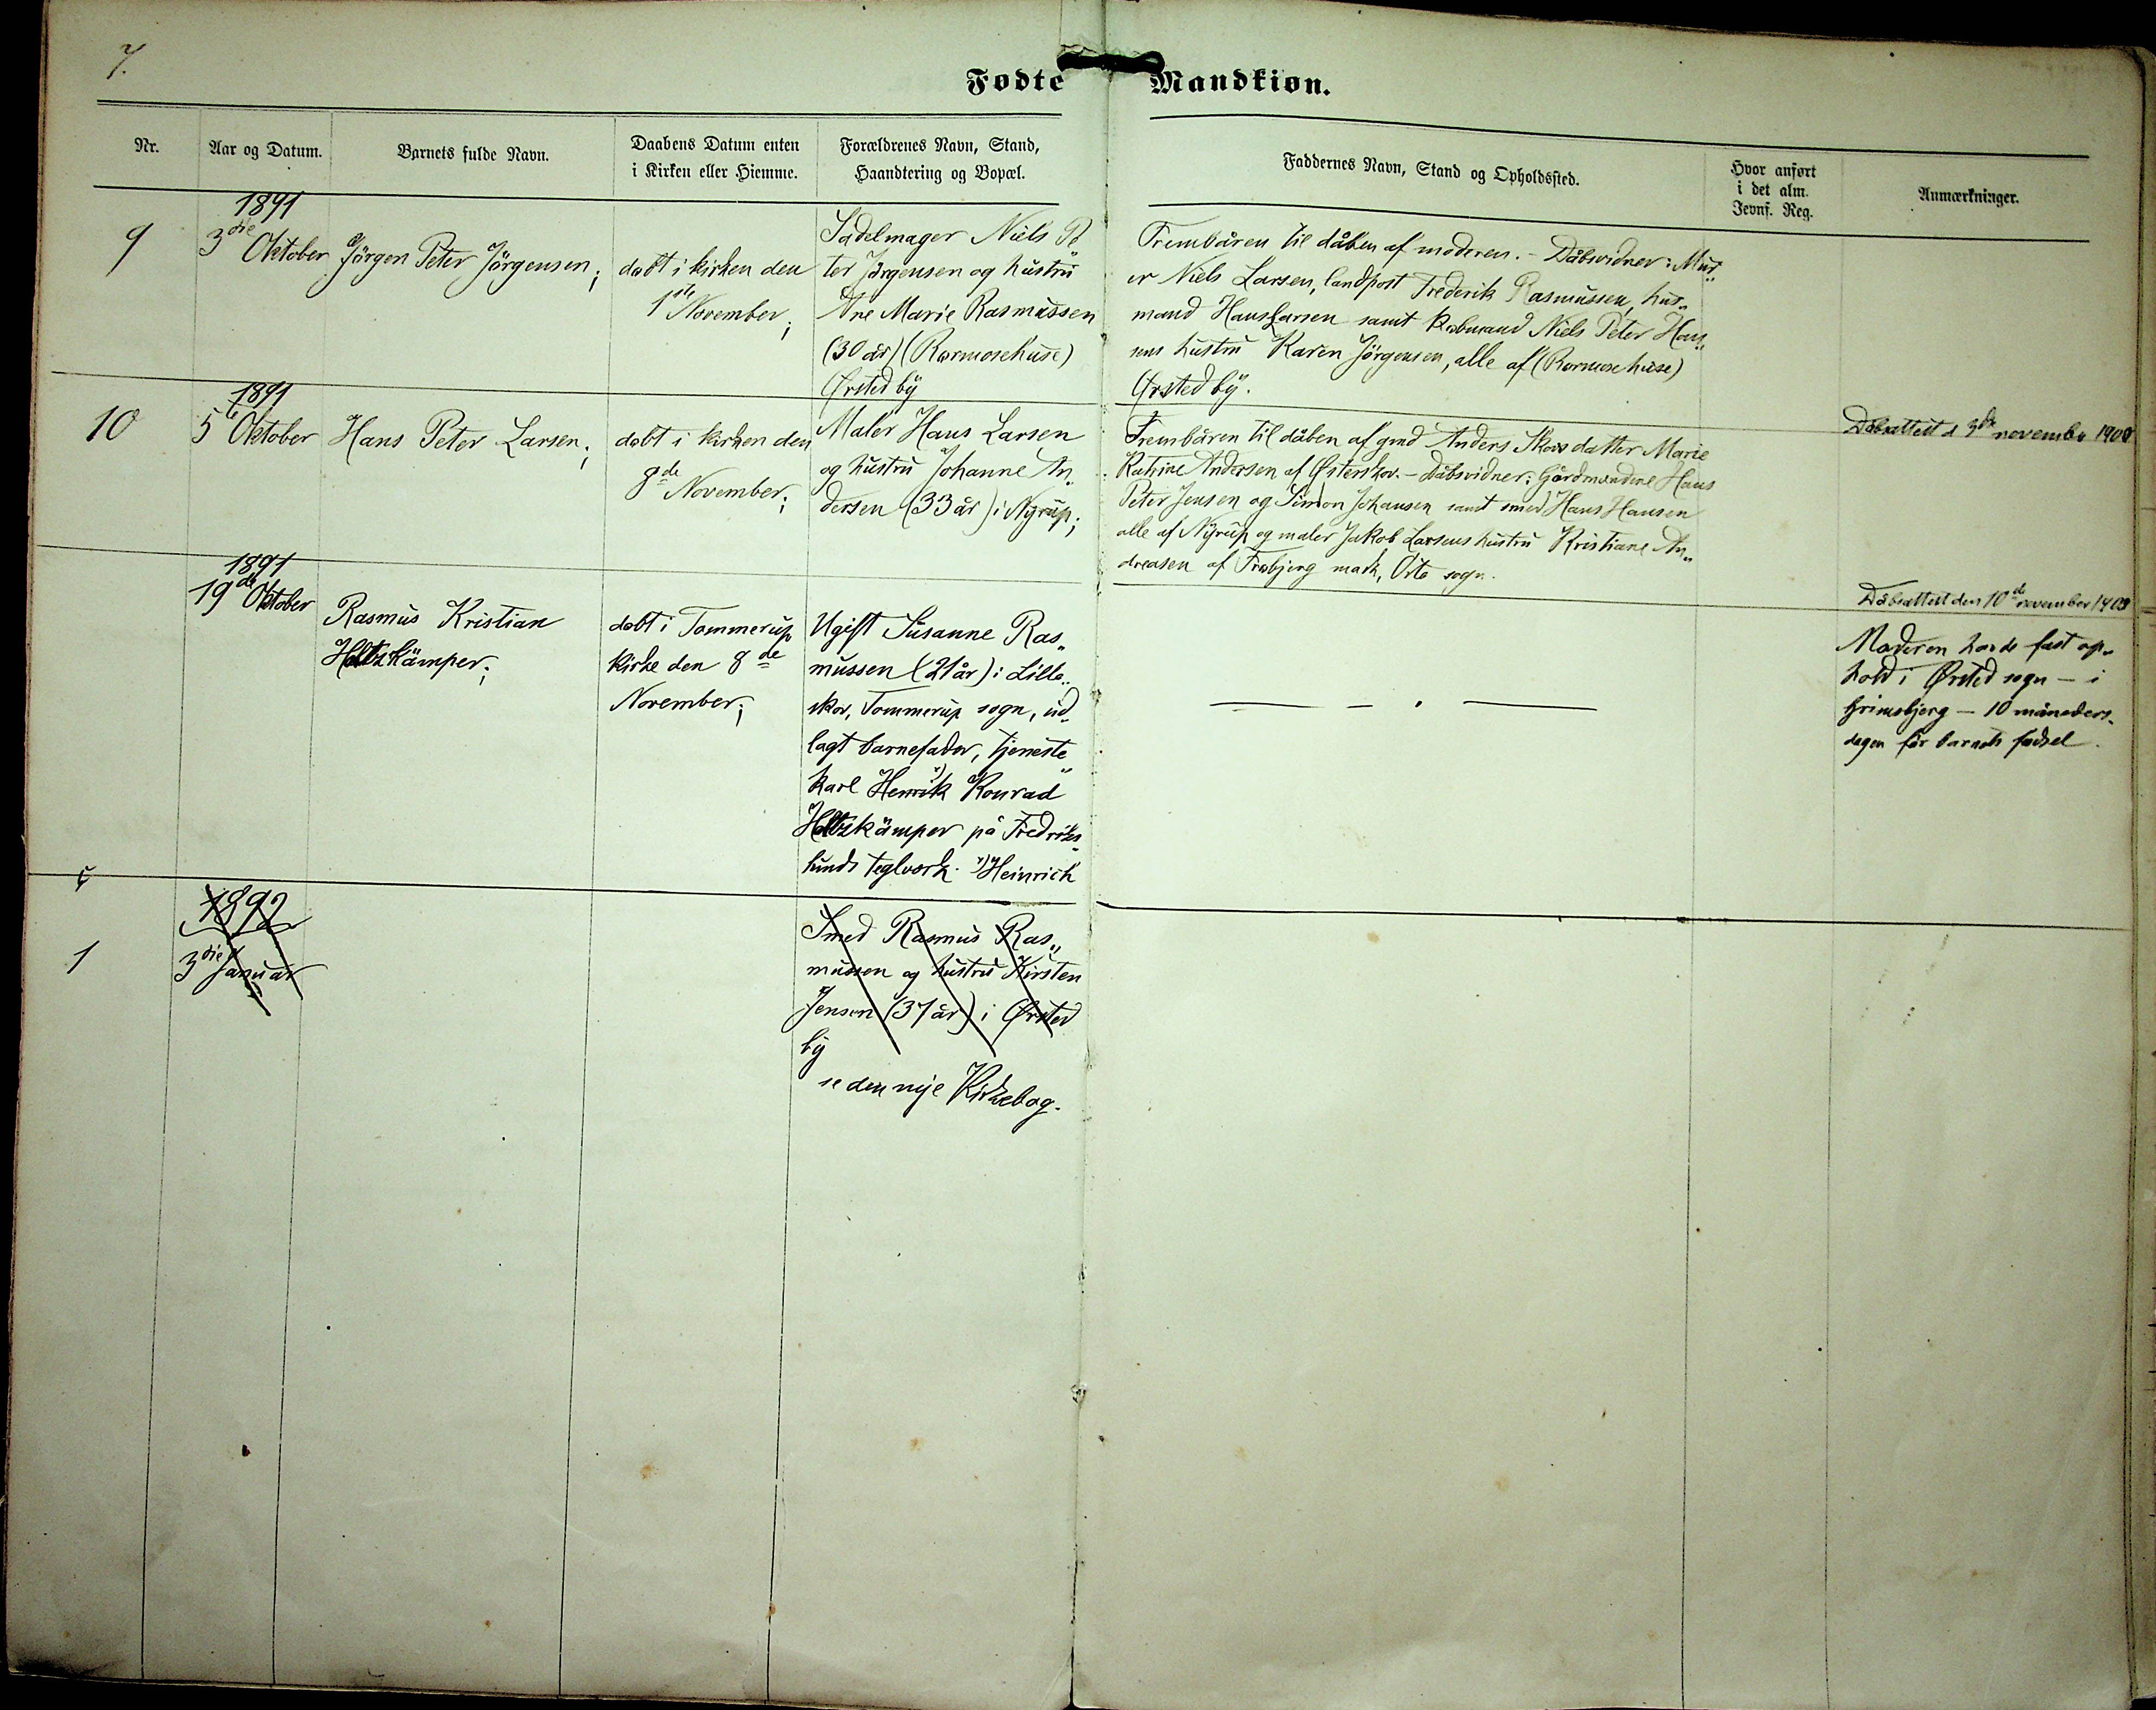 7.
Fødte Mandkiøn.
Nr.
Aar og Datum.
Barnets fulde Navn.
Daabens Datum enten
i Kirken eller Hiemme.
Forældrenes Navn, Stand,
Haandtering og Bopæl.
Faddernes Navn, Stand og Opholdssted.
Hvor anført
i det alm.
Jevnf. Reg.
Anmærkninger.
9
1891
3die Oktober
Jörgen Peter Jörgensen;
døbt i kirken den
1ste November;
Sadelmager Niels Pe
ter Jörgensen og hustru
Ane Marie Rasmussen
(30 år) (Rørmosehuse)
Ørsted by
Frembåren til dåben af moderen. - Dåbsvidner: Mur„
er Niels Larsen, landpost Frederik Rasmussen, hus„
mand Hans Larsen samt købmand Niels Peter Han„
sens hustru Karen Jörgensen, alle af (Rørmosehuse)
Ørsted by.
10
1891
5te Oktober
Hans Peter Larsen;
døbt i kirken den
8de November;
Maler Hans Larsen
og hustru Johanne An„
dersen (33 år) i Nyrup;
Frembåren til dåben af gmd Anders Skovs datter Marie
Katrine Andersen af Østerskov. - Dåbsvidner: Gårdmændene Hans
Peter Jensen og Simon Johansen samt smed Hans Hansen
alle af Nyrup og maler Jakob Larsens hustru Kristiane An„
dreasen af Frøbjerg mark, Orte sogn.
Dåbsattest d 3die november 1900
1891
19de Oktober
Rasmus Kristian
Holtzkämper;
døbt i Tommerup
kirke den 8de
November;
Ugift Susanne Ras„
mussen (21 år) i Lille„
skov, Tommerup sogn, ud„
lagt barnefader, tjeneste„
karl Henrik x) Konrad
Holtzkämper på Fredriks„
lunds teglværk. x) Heinrich
— — . —
Dåbsattest den 10de november 1903
Moderen havde fast op„
hold i Ørsted sogn — i
Grimsbjerg — 10 måneders„
dagen før barnets fødsel.
1
1892
3die Januar
Smed Rasmus Ras„
mussen og hustru Kirsten
Jensen (37 år) i Ørsted
by
se den nye Kirkebog.